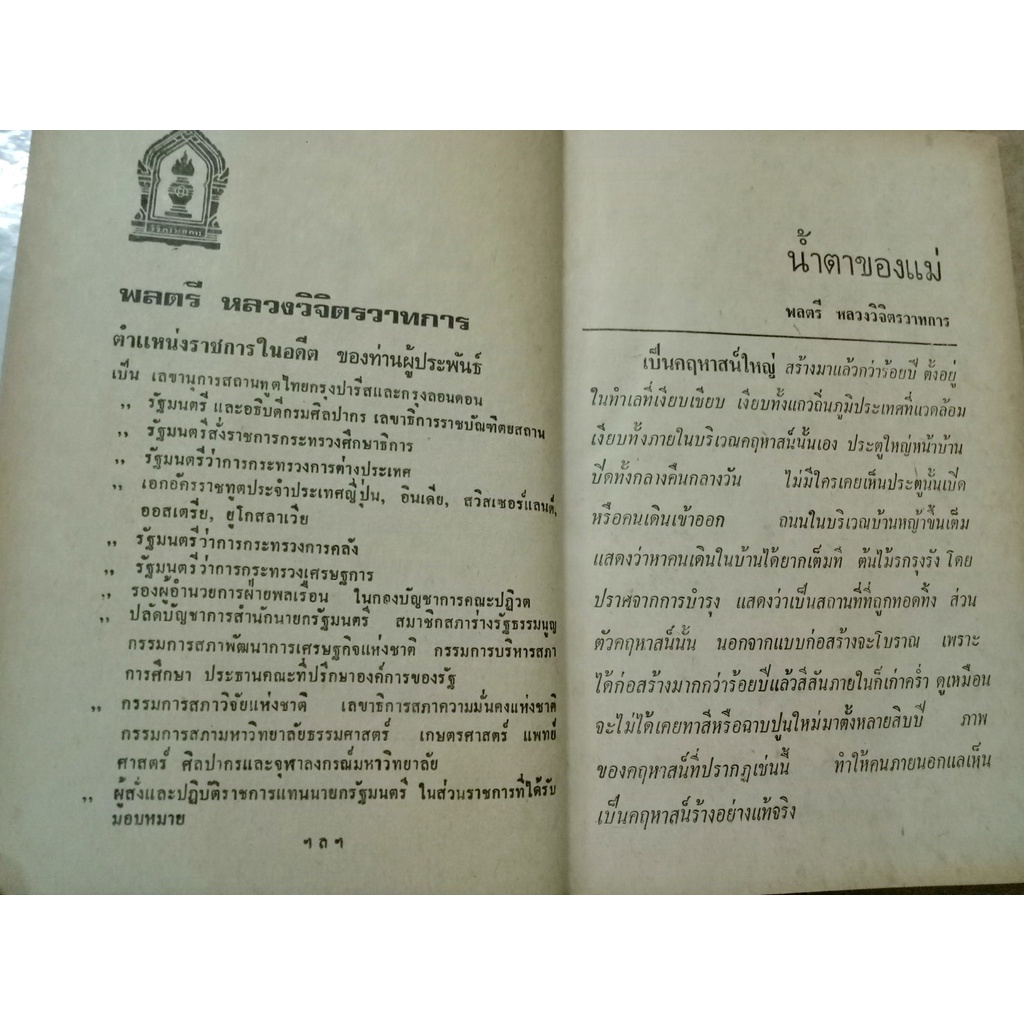 พลตรี หลวงวิจิตรวาทการ
ตำแหน่งราชการในอดีต ของท่านผู้ประพันธ์
เป็น เลขานุการสถานทูตไทยกรุงปารีสและกรุงลอนดอน
,, รัฐมนตรี และอธิบดีกรมศิลปากร เลขาธิการราชบัณฑิตยสถาน
,, รัฐมนตรีสั่งราชการกระทรวงศึกษาธิการ
,, รัฐมนตรีว่าการกระทรวงการต่างประเทศ
,, เอกอัครราชทูตประจำประเทศญี่ปุ่น, อินเดีย, สวิสเซอร์แลนด์,
ออสเตรีย, ยูโกสลาเวีย
,, รัฐมนตรีว่าการกระทรวงการคลัง
,, รัฐมนตรีว่าการกระทรวงเศรษฐการ
,, รองผู้อำนวยการฝ่ายพลเรือน ในกองบัญชาการคณะปฏิวัต
,, ปลัดบัญชาการสำนักนายกรัฐมนตรี สมาชิกสภาร่างรัฐธรรมนูญ
กรรมการสภาพัฒนาการเศรษฐกิจแห่งชาติ กรรมการบริหารสภา
การศึกษา ประธานคณะที่ปรึกษาองค์การของรัฐ
,, กรรมการสภาวิจัยแห่งชาติ เลขาธิการสภาความมั่นคงแห่งชาติ
กรรมการสภามหาวิทยาลัยธรรมศาสตร์ เกษตรศาสตร์ แพทย์
ศาสตร์ ศิลปากรและจุฬาลงกรณ์มหาวิทยาลัย
,, ผู้สั่งและปฏิบัติราชการแทนนายกรัฐมนตรี ในส่วนราชการที่ได้รับ
มอบหมาย
ฯลฯ
น้ำตาของแม่
พลตรี หลวงวิจิตรวาทการ
เป็นคฤหาสน์ใหญ่ สร้างมาแล้วกว่าร้อยปี ตั้งอยู่
ในทำเลที่เงียบเชียบ เงียบทั้งแถวถิ่นภูมิประเทศที่แวดล้อม
เงียบทั้งภายในบริเวณคฤหาสน์นั้นเอง ประตูใหญ่หน้าบ้าน
ปิดทั้งกลางคืนกลางวัน ไม่มีใครเคยเห็นประตูนั้นเปิด
หรือคนเดินเข้าออก ถนนในบริเวณบ้านหญ้าขึ้นเต็ม
แสดงว่าหาคนเดินในบ้านได้ยากเต็มที ต้นไม้รกรุงรัง โดย
ปราศจากการบำรุง แสดงว่าเป็นสถานที่ที่ถูกทอดทิ้ง ส่วน
ตัวคฤหาสน์นั้น นอกจากแบบก่อสร้างจะโบราณ เพราะ
ได้ก่อสร้างมากกว่าร้อยปีแล้วสีสันภายในก็เก่าคร่ำ ดูเหมือน
จะไม่ได้เคยทาสีหรือฉาบปูนใหม่มาตั้งหลายสิบปี ภาพ
ของคฤหาสน์ที่ปรากฏเช่นนี้ ทำให้คนภายนอกแลเห็น
เป็นคฤหาสน์ร้างอย่างแท้จริง